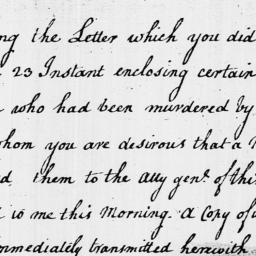 ng the Letter which you did
23 Instant enclosing certain
who had been murdered by
whom you are desirous that a
d them to the Atty genl. of this
d to me this Morning. A Copy of
immediately transmitted herewith